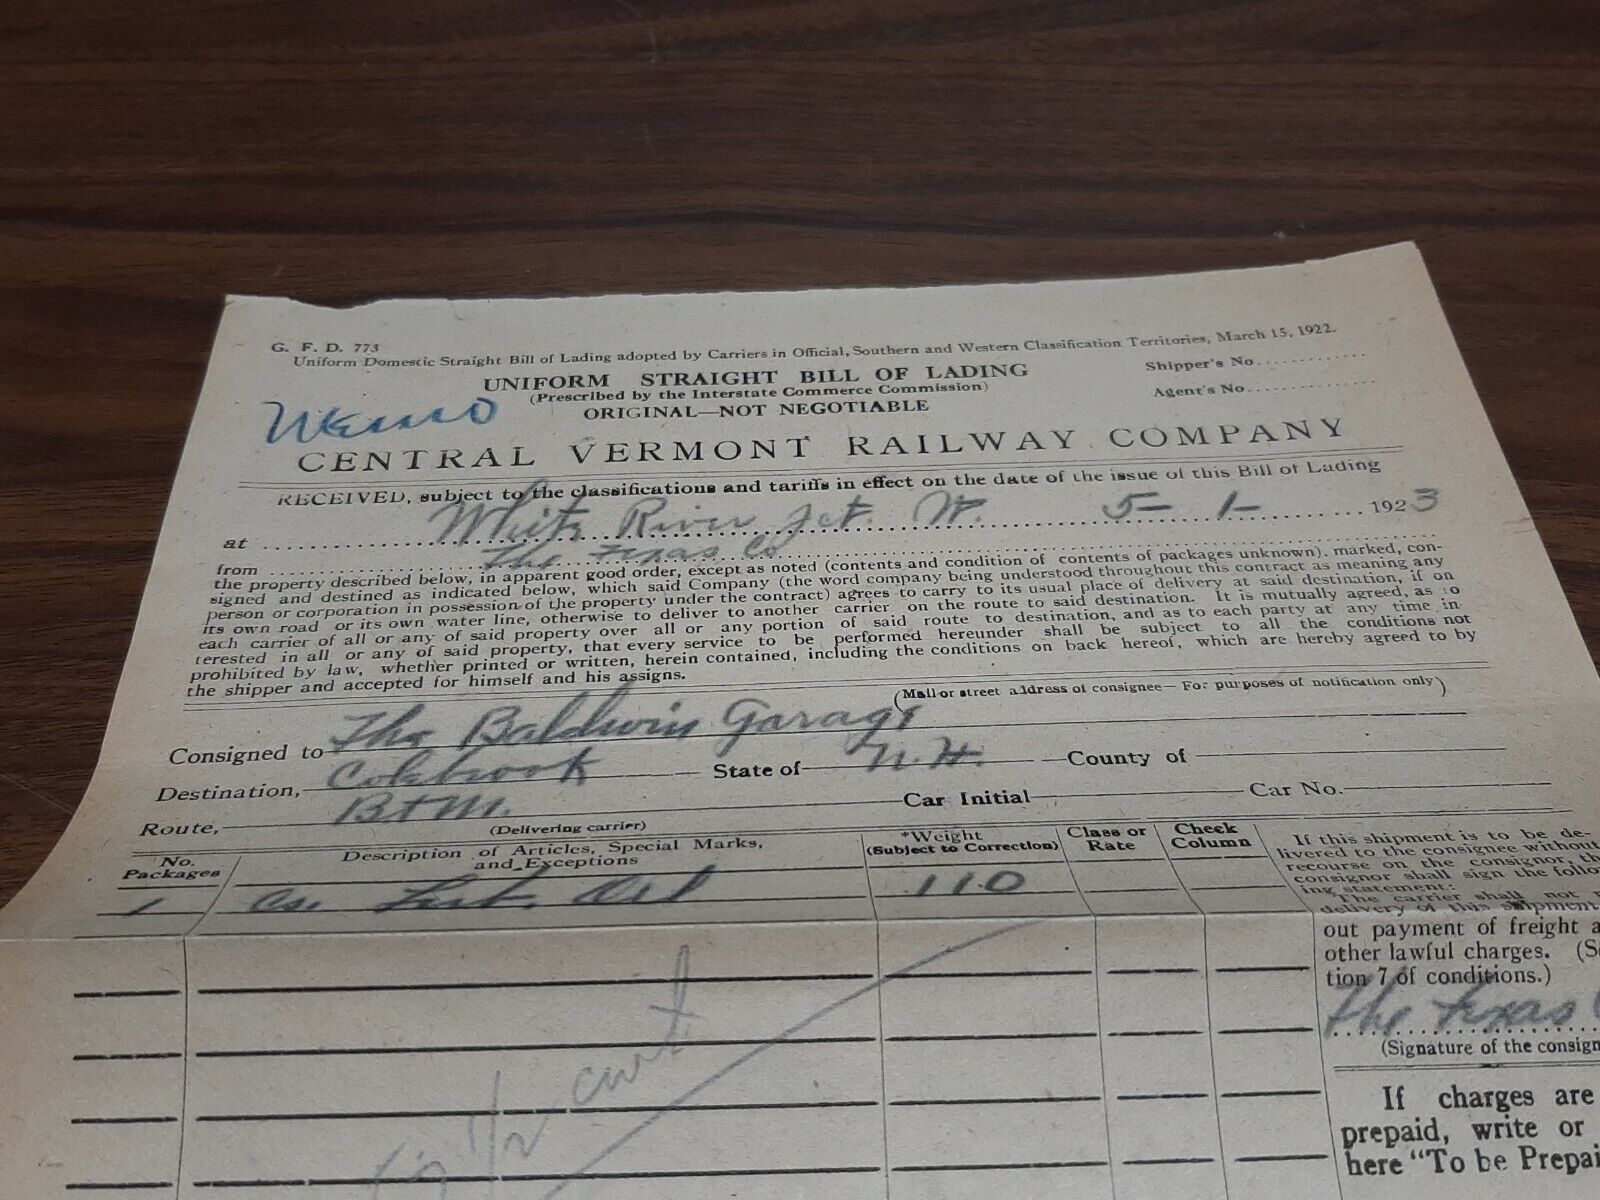 G. F. D. 773
Uniform Domestic Straight Bill of Lading adopted by Carriers in Official, Southern and Western Classification Territories, March 15, 1922.
UNIFORM STRAIGHT BILL OF LADING
Shipper's No.
(Prescribed by the Interstate Commerce Commission)
Agent's No.
Memo
ORIGINAL—NOT NEGOTIABLE
CENTRAL VERMONT RAILWAY COMPANY
RECEIVED, subject to the classifications and tariffs in effect on the date of the issue of this Bill of Lading
at White River Jct. Vt. 5-1- 1923
from The Texas Co
the property described below, in apparent good order, except as noted (contents and condition of contents of packages unknown), marked, con-
signed and destined as indicated below, which said Company (the word company being understood throughout this contract as meaning any
person or corporation in possession of the property under the contract) agrees to carry to its usual place of delivery at said destination, if on
its own road or its own water line, otherwise to deliver to another carrier on the route to said destination. It is mutually agreed, as to
each carrier of all or any of said property over all or any portion of said route to destination, and as to each party at any time in-
terested in all or any of said property, that every service to be performed hereunder shall be subject to all the conditions not
prohibited by law, whether printed or written, herein contained, including the conditions on back hereof, which are hereby agreed to by
the shipper and accepted for himself and his assigns.
(Mail or street address of consignee—For purposes of notification only)
Consigned to The Baldwin Garage
Destination, Colebrook State of N.H. County of
Route, B+M. Car Initial Car No.
(Delivering carrier)
No. Packages
Description of Articles, Special Marks, and Exceptions
*Weight (Subject to Correction)
Class or Rate
Check Column
1 Cs. Oil 110
1/2 cut
If this shipment is to be de-
livered to the consignee without
recourse on the consignor, the
consignor shall sign the follow-
ing statement:
The carrier shall not
delivery of this shipment
out payment of freight
other lawful charges. (
tion 7 of conditions.)
The Texas
(Signature of the consign
If charges are
prepaid, write or
here "To be Prepai